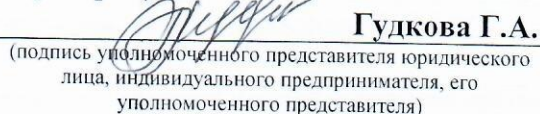 Гудкова Г.А.
(подпись уполномоченного представителя юридического
лица, индивидуального предпринимателя, его
уполномоченного представителя)